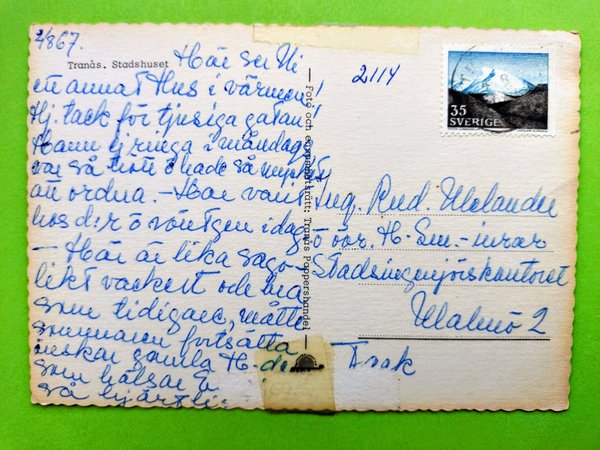 2/8 67.
Tranås. Stadshuset
Här ser Ni
ett annat Hus i värmen!
Hj. tack för tjusiga gåvan!
Hann ej ringa i måndags
var så trött o hade så mycket
att ordna. — Har varit
hos d:r o röntgen i dag
— Här är lika sago-
likt vackert och bra
som tidigare, måtte
sommaren fortsätta
önskar gamla H-
som hälsar
så hjärtli
Foto och ensamrätt: Tranås Pappershandel
2114
35
SVERIGE
Ing. Rud.
o övr. H.
Stadsingenjörskontoret
Malmö 2